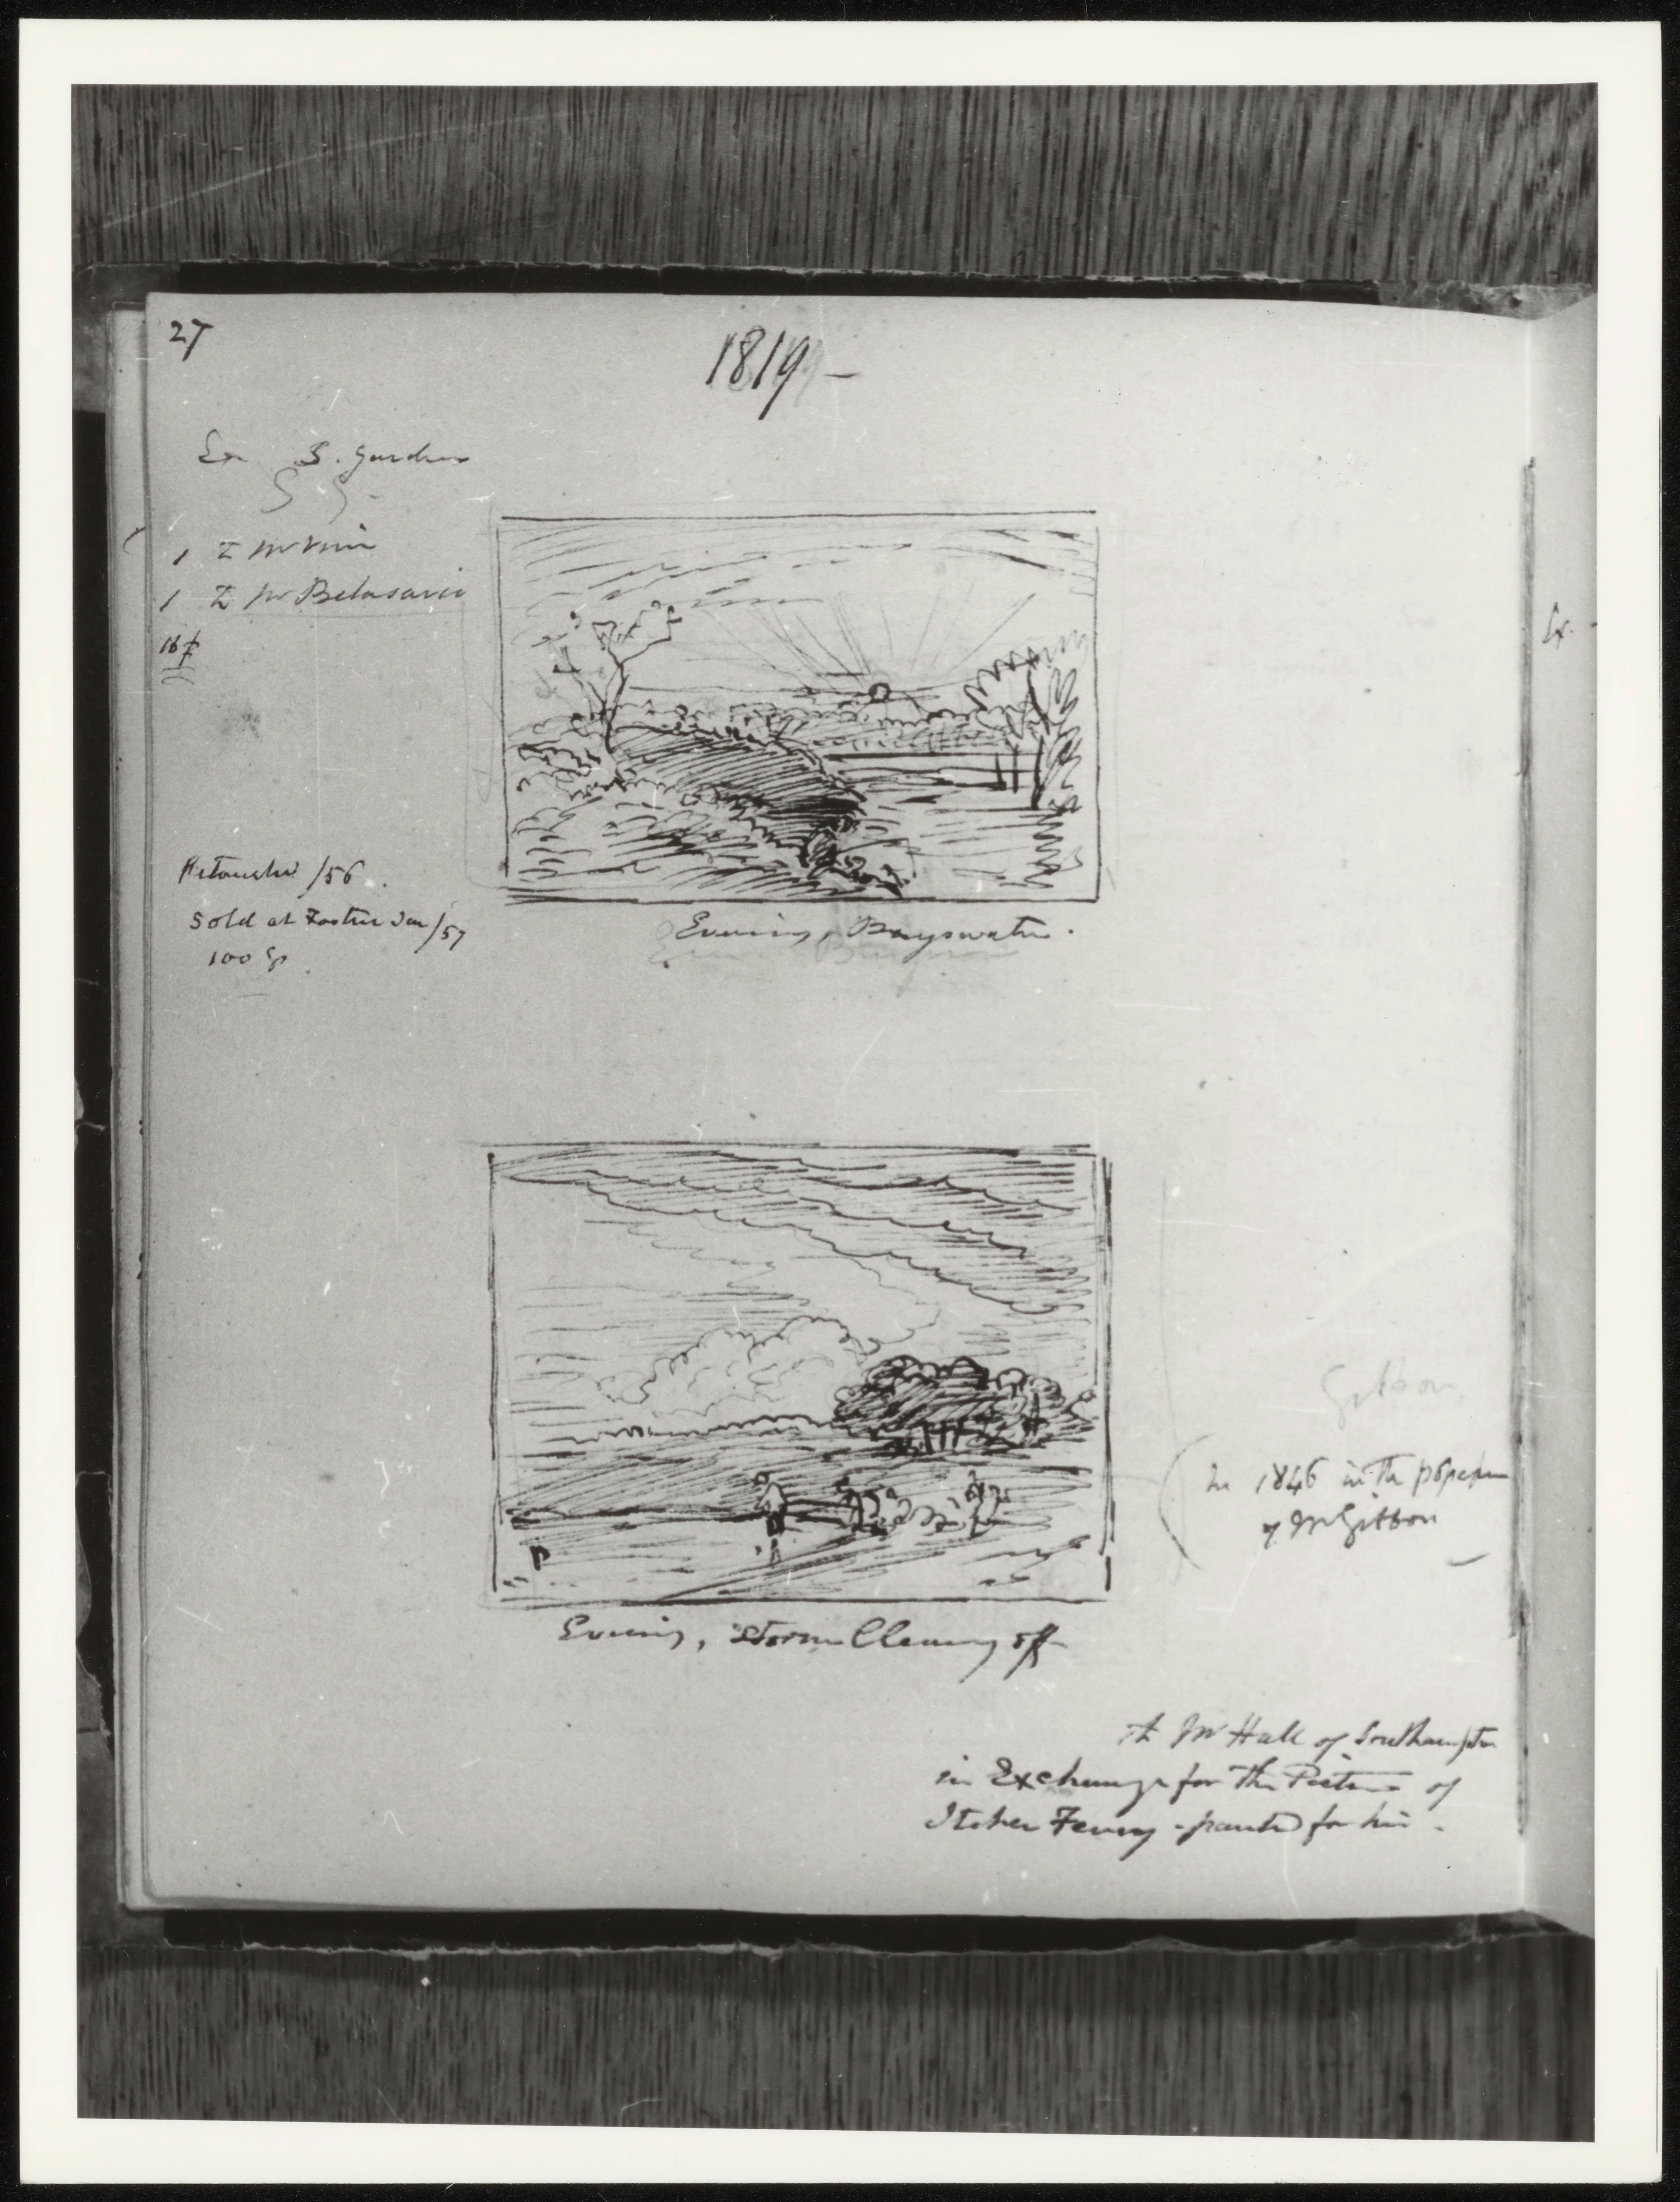 27
1819 –
Ex S. Gardens
1
1
Retouched /56.
Sold at Foster Jan /57
100 Gs
Evening, Bayswater.
Gibbon
In 1846 in the
of Mr Gibbon
Evening, Storm Clearing off
Mr Hall of Southampton
in Exchange for the Picture of
Itchen Ferry - painted for him.
Ex.